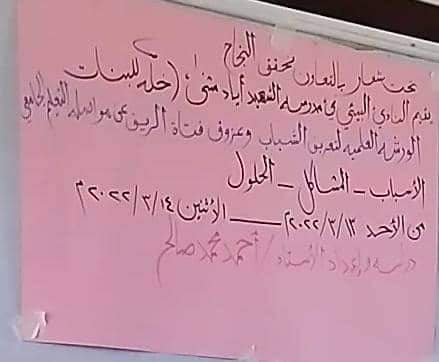 تحت شعار بالتعاون نحقق النجاح
يقيم النادي البيئي في مدرسة الشهيد أياد مثنى (حله للبنات
الورشة العلمية لتعريف الشباب وعزوف فتاة الريف عن مواصلة التعليم الجامعي
الأسباب - المشاكل - الحلول
من الأحد ٢٠٢٢/٣/١٣م ــــ الأثنين ٢٠٢٢/٣/١٤م
دراسة وإعداد الأستاذ / أحمد محمد صالح